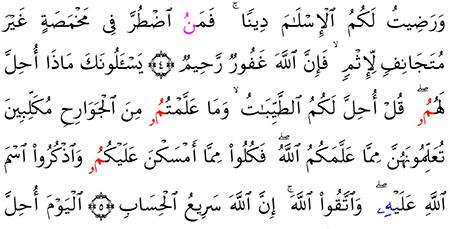 وَرَضِيتُ لَكُمُ ٱلْإِسْلَـٰمَ دِينًا ۚ فَمَنُ ٱضْطُرَّ فِى مَخْمَصَةٍ غَيْرَ
مُتَجَانِفٍ لِّإِثْمٍ ۙ فَإِنَّ ٱللَّهَ غَفُورٌ رَّحِيمٌ ﴿٤﴾ يَسْـَٔلُونَكَ مَاذَا أُحِلَّ
لَهُمُۥ ۖ قُلْ أُحِلَّ لَكُمُ ٱلطَّيِّبَـٰتُ ۙ وَمَا عَلَّمْتُمُۥ مِنَ ٱلْجَوَارِحِ مُكَلِّبِينَ
تُعَلِّمُونَهُنَّ مِمَّا عَلَّمَكُمُ ٱللَّهُ ۖ فَكُلُوا۟ مِمَّا أَمْسَكْنَ عَلَيْكُمُۥ وَٱذْكُرُوا۟ ٱسْمَ
ٱللَّهِ عَلَيْهِۦ ۖ وَٱتَّقُوا۟ ٱللَّهَ ۚ إِنَّ ٱللَّهَ سَرِيعُ ٱلْحِسَابِ ﴿٥﴾ ٱلْيَوْمَ أُحِلَّ